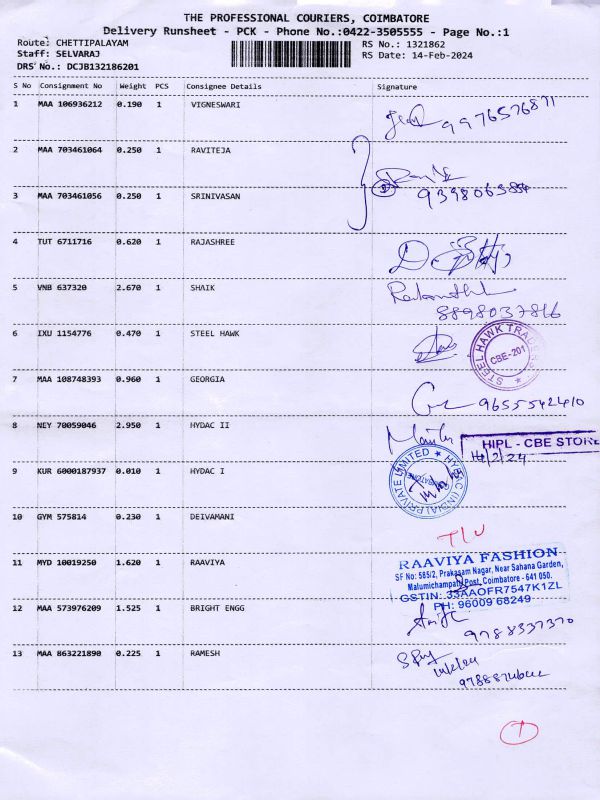 THE PROFESSIONAL COURIERS, COIMBATORE
Delivery Runsheet - PCK - Phone No.:0422-3505555 - Page No.:1
Route: CHETTIPALAYAM RS No.: 1321862
Staff: SELVARAJ RS Date: 14-Feb-2024
DRS No.: DCJB132186201
S No Consignment No Weight PCS Consignee Details Signature
1 MAA 106936212 0.190 1 VIGNESWARI
9976576871
2 MAA 703461064 0.250 1 RAVITEJA
3 MAA 703461056 0.250 1 SRINIVASAN
4 TUT 6711716 0.620 1 RAJASHREE
5 VNB 637320 2.670 1 SHAIK
8898037816
6 IXU 1154776 0.470 1 STEEL HAWK
STEEL HAWK TRADERS
CBE-201
7 MAA 108748393 0.960 1 GEORGIA
9655542410
8 NEY 70059046 2.950 1 HYDAC II
HIPL - CBE STORE
14/2/24
9 KUR 6000187937 0.010 1 HYDAC I
HYDAC (INDIA) PRIVATE LIMITED
10 GYM 575814 0.230 1 DEIVAMANI
11 MYD 10019250 1.620 1 RAAVIYA
RAAVIYA FASHION
SF No: 585/2, Prakasam Nagar, Near Sahana Garden,
Malumichampatti Post, Coimbatore - 641 050.
GSTIN: 33AAOFR7547K1ZL
PH: 96009 68249
12 MAA 573976209 1.525 1 BRIGHT ENGG
9788337370
13 MAA 863221890 0.225 1 RAMESH